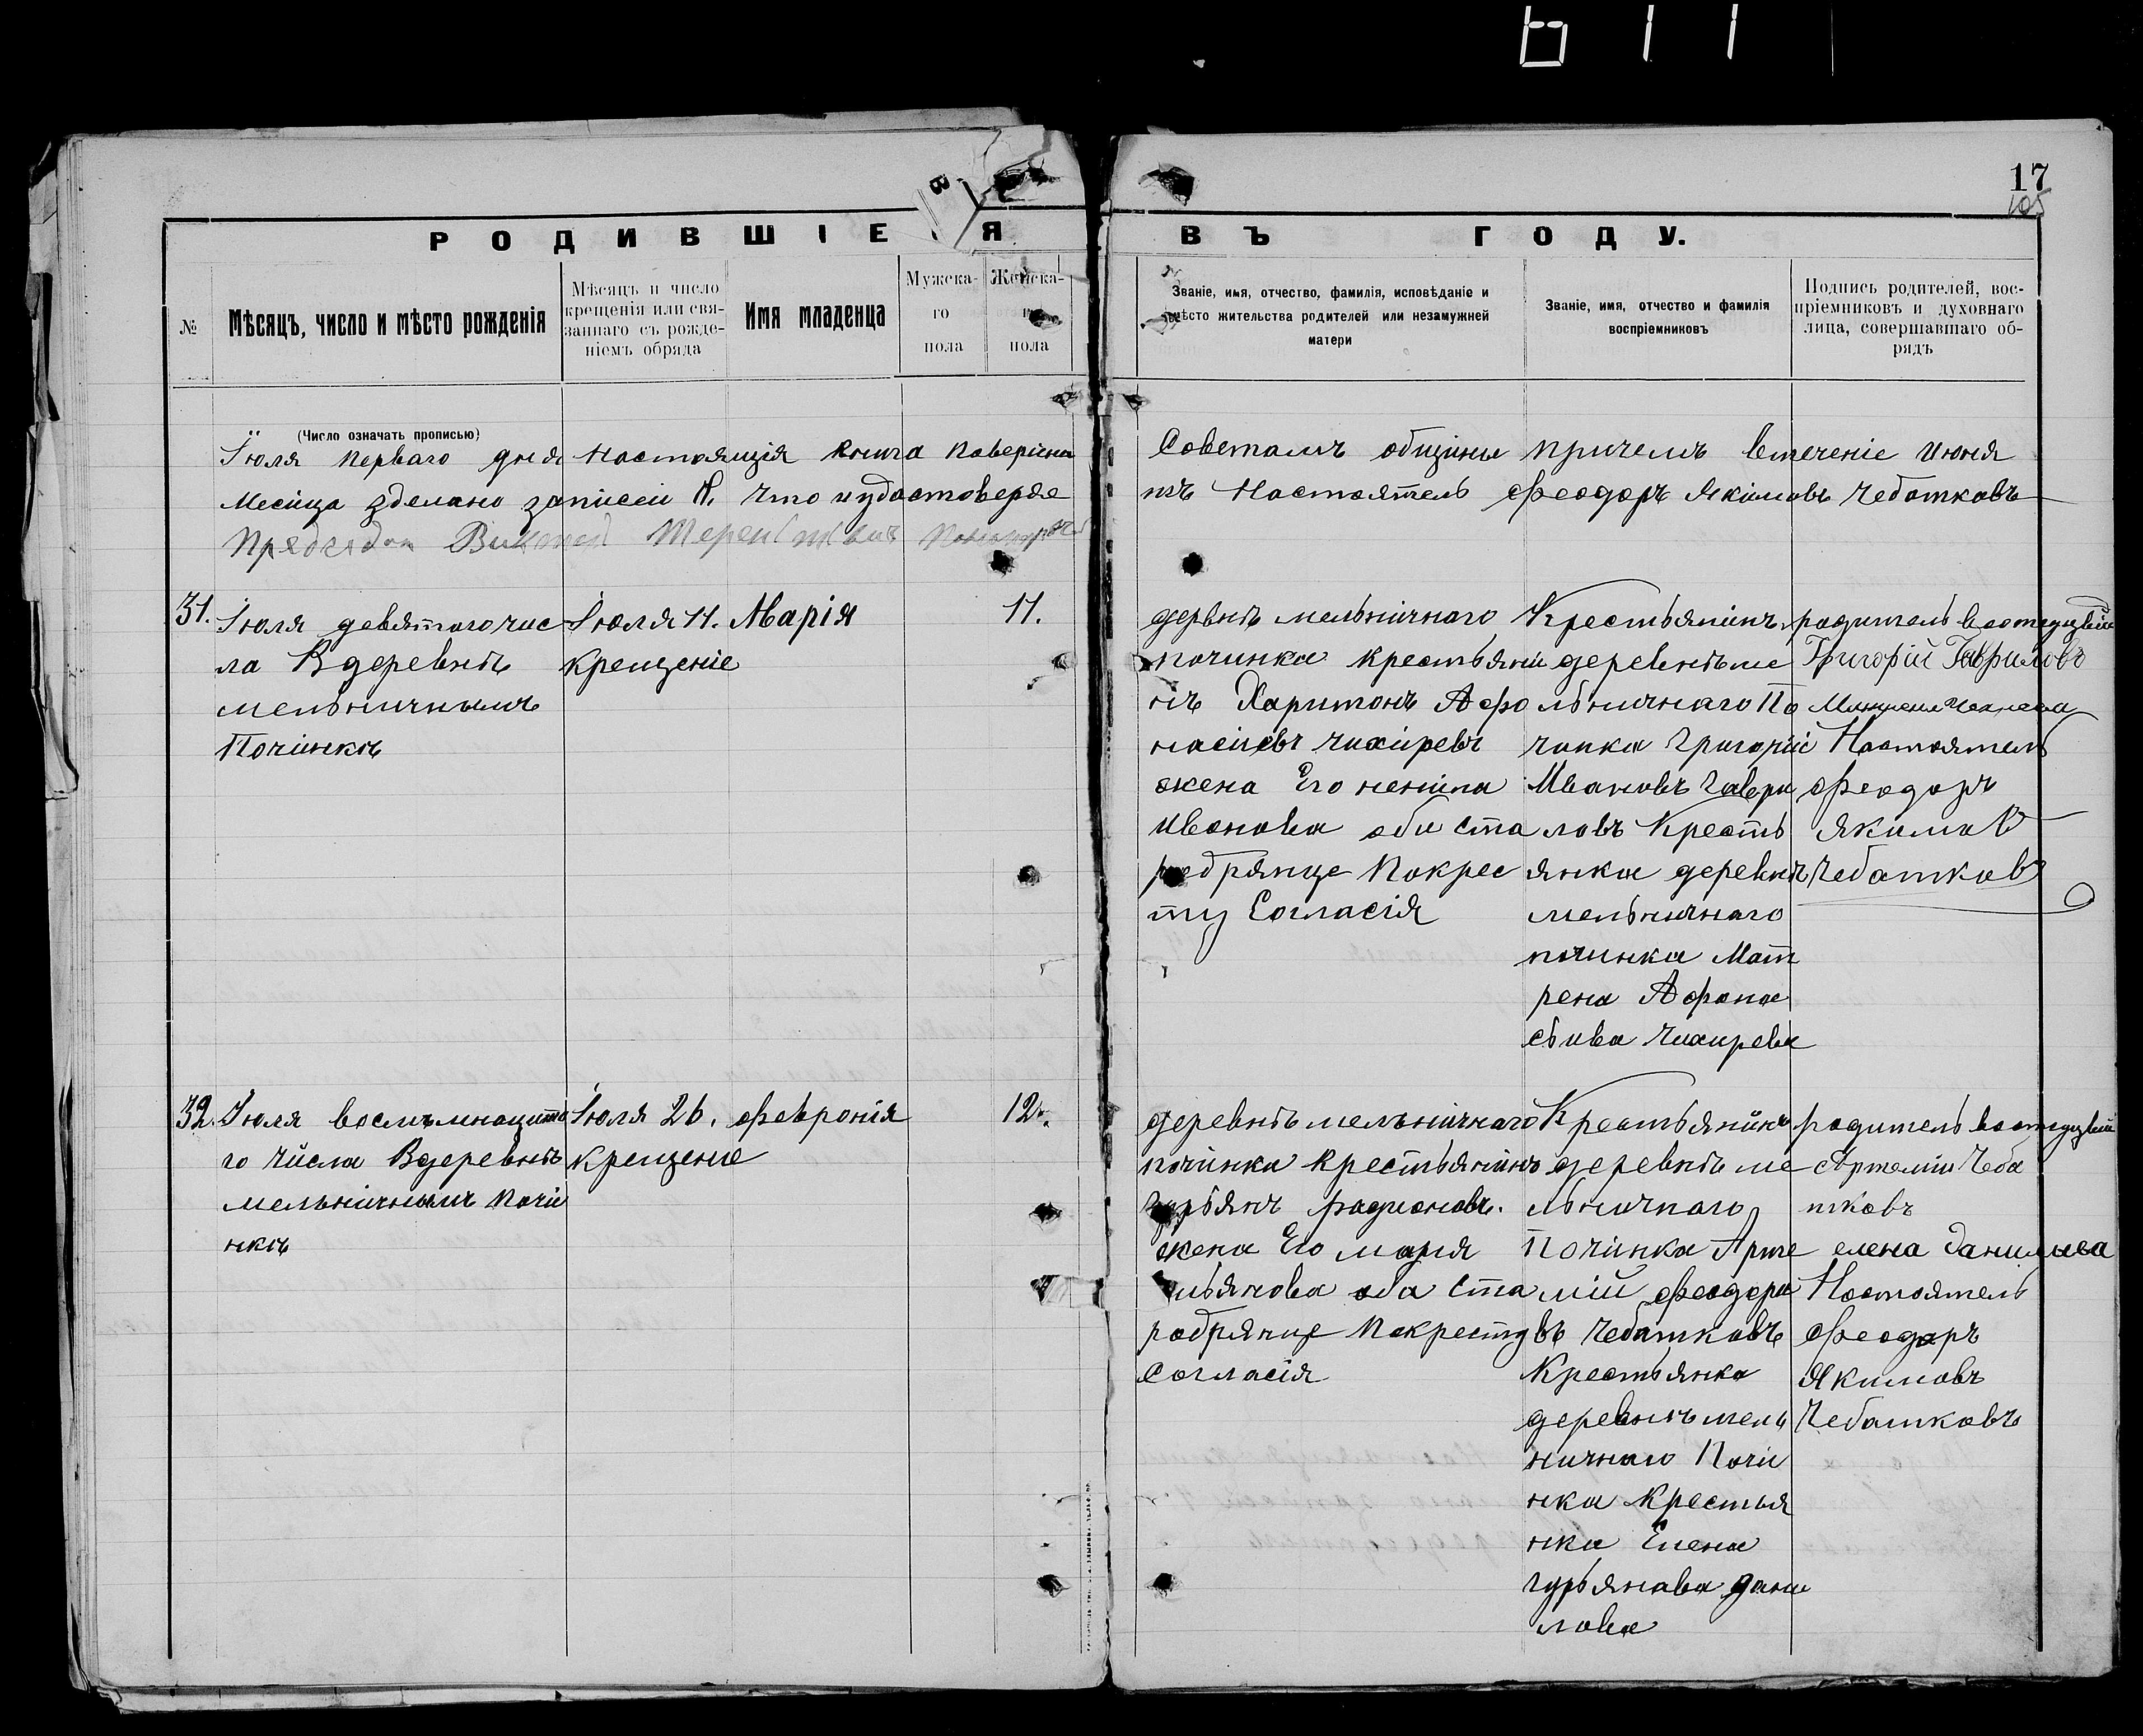 17
105
РОДИВШІЕ Я
ВЪ ГОДУ.
№
Мѣсяцъ, число и мѣсто рожденія
Мѣсяцъ и число
крещенія или свя-
заннаго съ рожде-
ніемъ обряда
Имя младенца
Мужска-
го
пола
Женска-
пола
Званіе, имя, отчество, фамилія, исповѣданіе и
мѣсто жительства родителей или незамужней
матери
Званіе, имя, отчество и фамилія
воспріемниковъ
Подпись родителей, вос-
пріемниковъ и духовнаго
лица, совершавшаго об-
рядъ
(Число означать прописью)
Іюля перваго дня настоящія книга поверина Советамъ общины причемъ втеченіе июня
месяца зделано записеи что иудостоверяе
мъ Настоятель Феодоръ Якимовъ Чебатковъ
31.
Іюля девятаго чис
ла Вдеревнѣ
мельничнымъ
Починкѣ
Іюля 11.
крещеніе
Марія
11.
дервнѣ мельничнаго
починка крестьяни
нъ Харитонъ Афо
насиевъ чихиревъ
жена Его
Ивонова оби ста
рообрянце Покрес
ту Согласія
Крестьянинъ
деревнѣ ме
льничнаго По
чинка Григорій
Ивановъ Гаври
ловъ Кресть
янка деревнѣ
мельничнаго
починка Мат
рена Афона
сьива Чихирева
родитель
Григорій Гавриловъ
Настоятель
Феодоръ
Якимов
Чебатков
32.
Іюля восмъмнацата
го числа Вдеревнѣ
мельничнымъ почи
нкѣ
Іюля 26.
крещение
Февронія
12.
деревнѣ мельничнаго
починка крестьянинъ
гурьянъ родионовъ.
жена Его мария
ульянова оба ста
рообрянце Покресту
Согласія
Крестьянинъ
деревнѣ ме
льничнаго
Починка Арте
мій Феодоро
въ Чебатковъ
Крестьянка
деревнѣ мель
ничнаго Почи
нка Крестья
нка Елена
гурьянава Дани
лова
родитель
Артемии Чеба
тковъ
елена данилыва
Настоятель
Феодоръ
Якимовъ
Чебатковъ